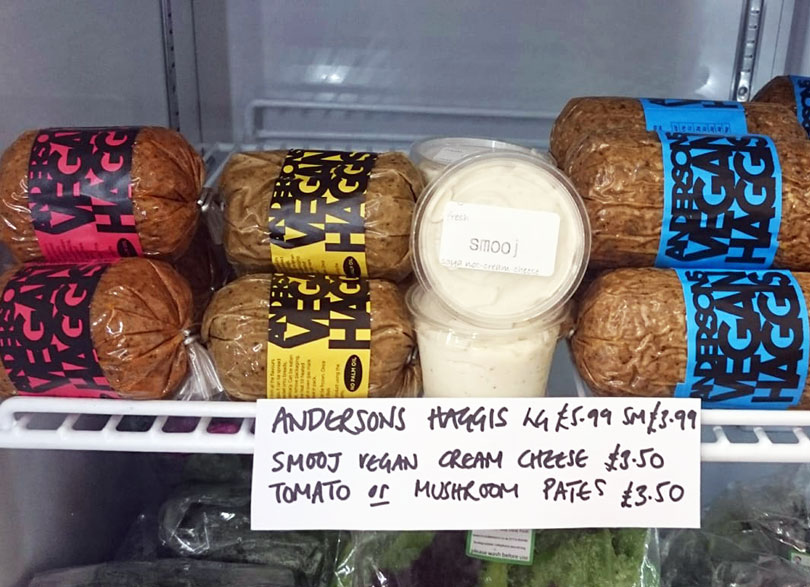 ANDERSONS
VEGAN
HAGGIS
ANDERSONS
VEGAN
HAGGIS
NO PALM OIL
fresh
smooj
ANDERSONS
VEGAN
HAGGIS
ANDERSONS
VEGAN
HAGGIS
ANDERSONS
VEGAN
HAGGIS
NO PALM OIL
ANDERSONS
VEGAN
HAGGIS
ANDERSONS HAGGIS LG £5.99 SM £3.99
SMOOJ VEGAN CREAM CHEESE £3.50
TOMATO or MUSHROOM PATES £3.50
please wash before use